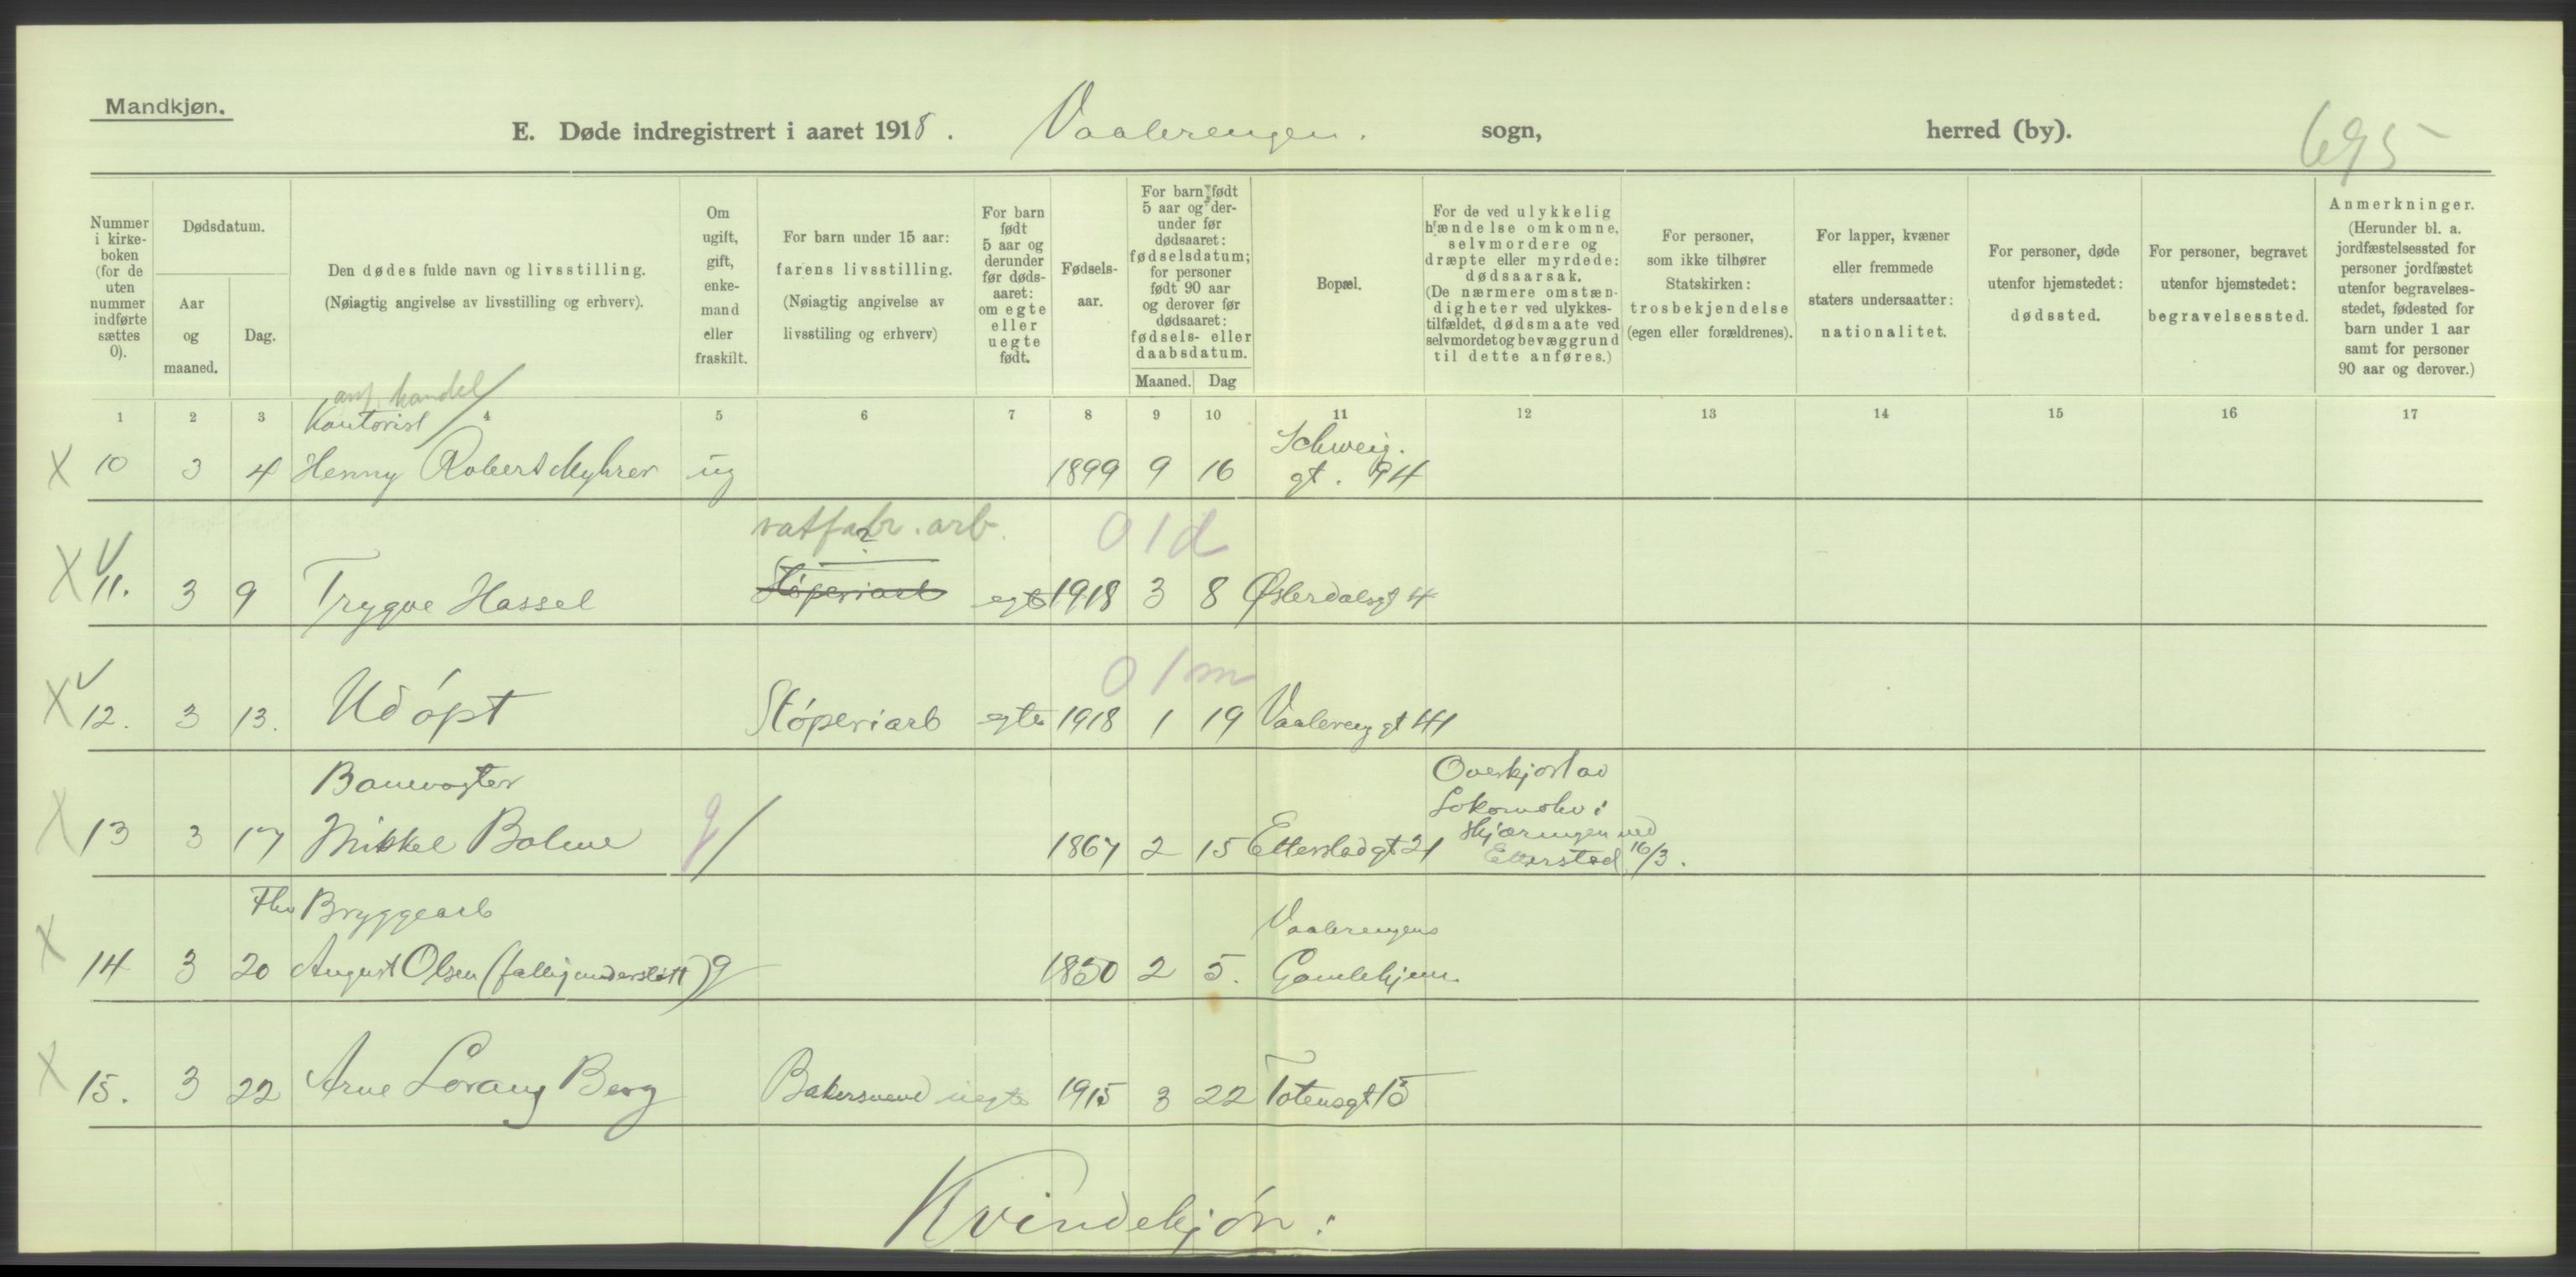 Mandkjøn.
E. Døde indregistrert i aaret 1918. Vaalerengen. sogn, herred (by). 695
Nummer i kirke-boken (for de uten nummer indførte sættes 0).
Dødsdatum.
Aar og maaned.
Dag.
Den dødes fulde navn og livsstilling.
(Nøiagtig angivelse av livsstilling og erhverv).
Om ugift, gift, enke-mand eller fraskilt.
For barn under 15 aar: farens livsstilling.
(Nøiagtig angivelse av livsstiling og erhverv)
For barn født 5 aar og derunder før døds-aaret: om egte eller uegte født.
Fødsels-aar.
For barn født 5 aar og der-under før dødsaaret: fødselsdatum; for personer født 90 aar og derover før dødsaaret: fødsels- eller daabsdatum.
Maaned. Dag
Bopæl.
For de ved ulykkelig hændelse omkomne, selvmordere og dræpte eller myrdede: dødsaarsak.
(De nærmere omstæn-digheter ved ulykkes-tilfældet, dødsmaate ved selvmordet og bevæggrund til dette anføres.)
For personer, som ikke tilhører Statskirken: trosbekjendelse (egen eller forældrenes).
For lapper, kvæner eller fremmede staters undersaatter: nationalitet.
For personer, døde utenfor hjemstedet: dødssted.
For personer, begravet utenfor hjemstedet: begravelsessted.
Anmerkninger.
(Herunder bl. a. jordfæstelsessted for personer jordfæstet utenfor begravelses-stedet, fødested for barn under 1 aar samt for personer 90 aar og derover.)
1 2 3 4 5 6 7 8 9 10 11 12 13 14 15 16 17
handel
Kontorist
X 10 3 4 Henny Robert Myhrer ug 1899 9 16 Schweig. gt. 94
vatfabr. arb. 0 1 d
X V 11. 3 9 Trygve Hassel Støperiarb egte 1918 3 8 Østerdalsgt 4
0 1 m
X V 12. 3 13. Udøpt Støperiarb egte 1918 1 19 Vaalereng gt 41
Banevogter
X 13 3 17 Mikkel Bolme g/ 1867 2 15 Etterstadgt 21 Overkjørt av Lokomotiv i Skjæringen ved Etterstad 16/3.
Fhv Bryggearb
X 14 3 20 August Olsen (fattigunderstøtt) g 1850 2 5. Vaalerengens Gamlehjem
X 15. 3 22 Arne Lorang Berg Bakersvend uegte 1915 3 22 Totensgt 15
Kvindekjøn: